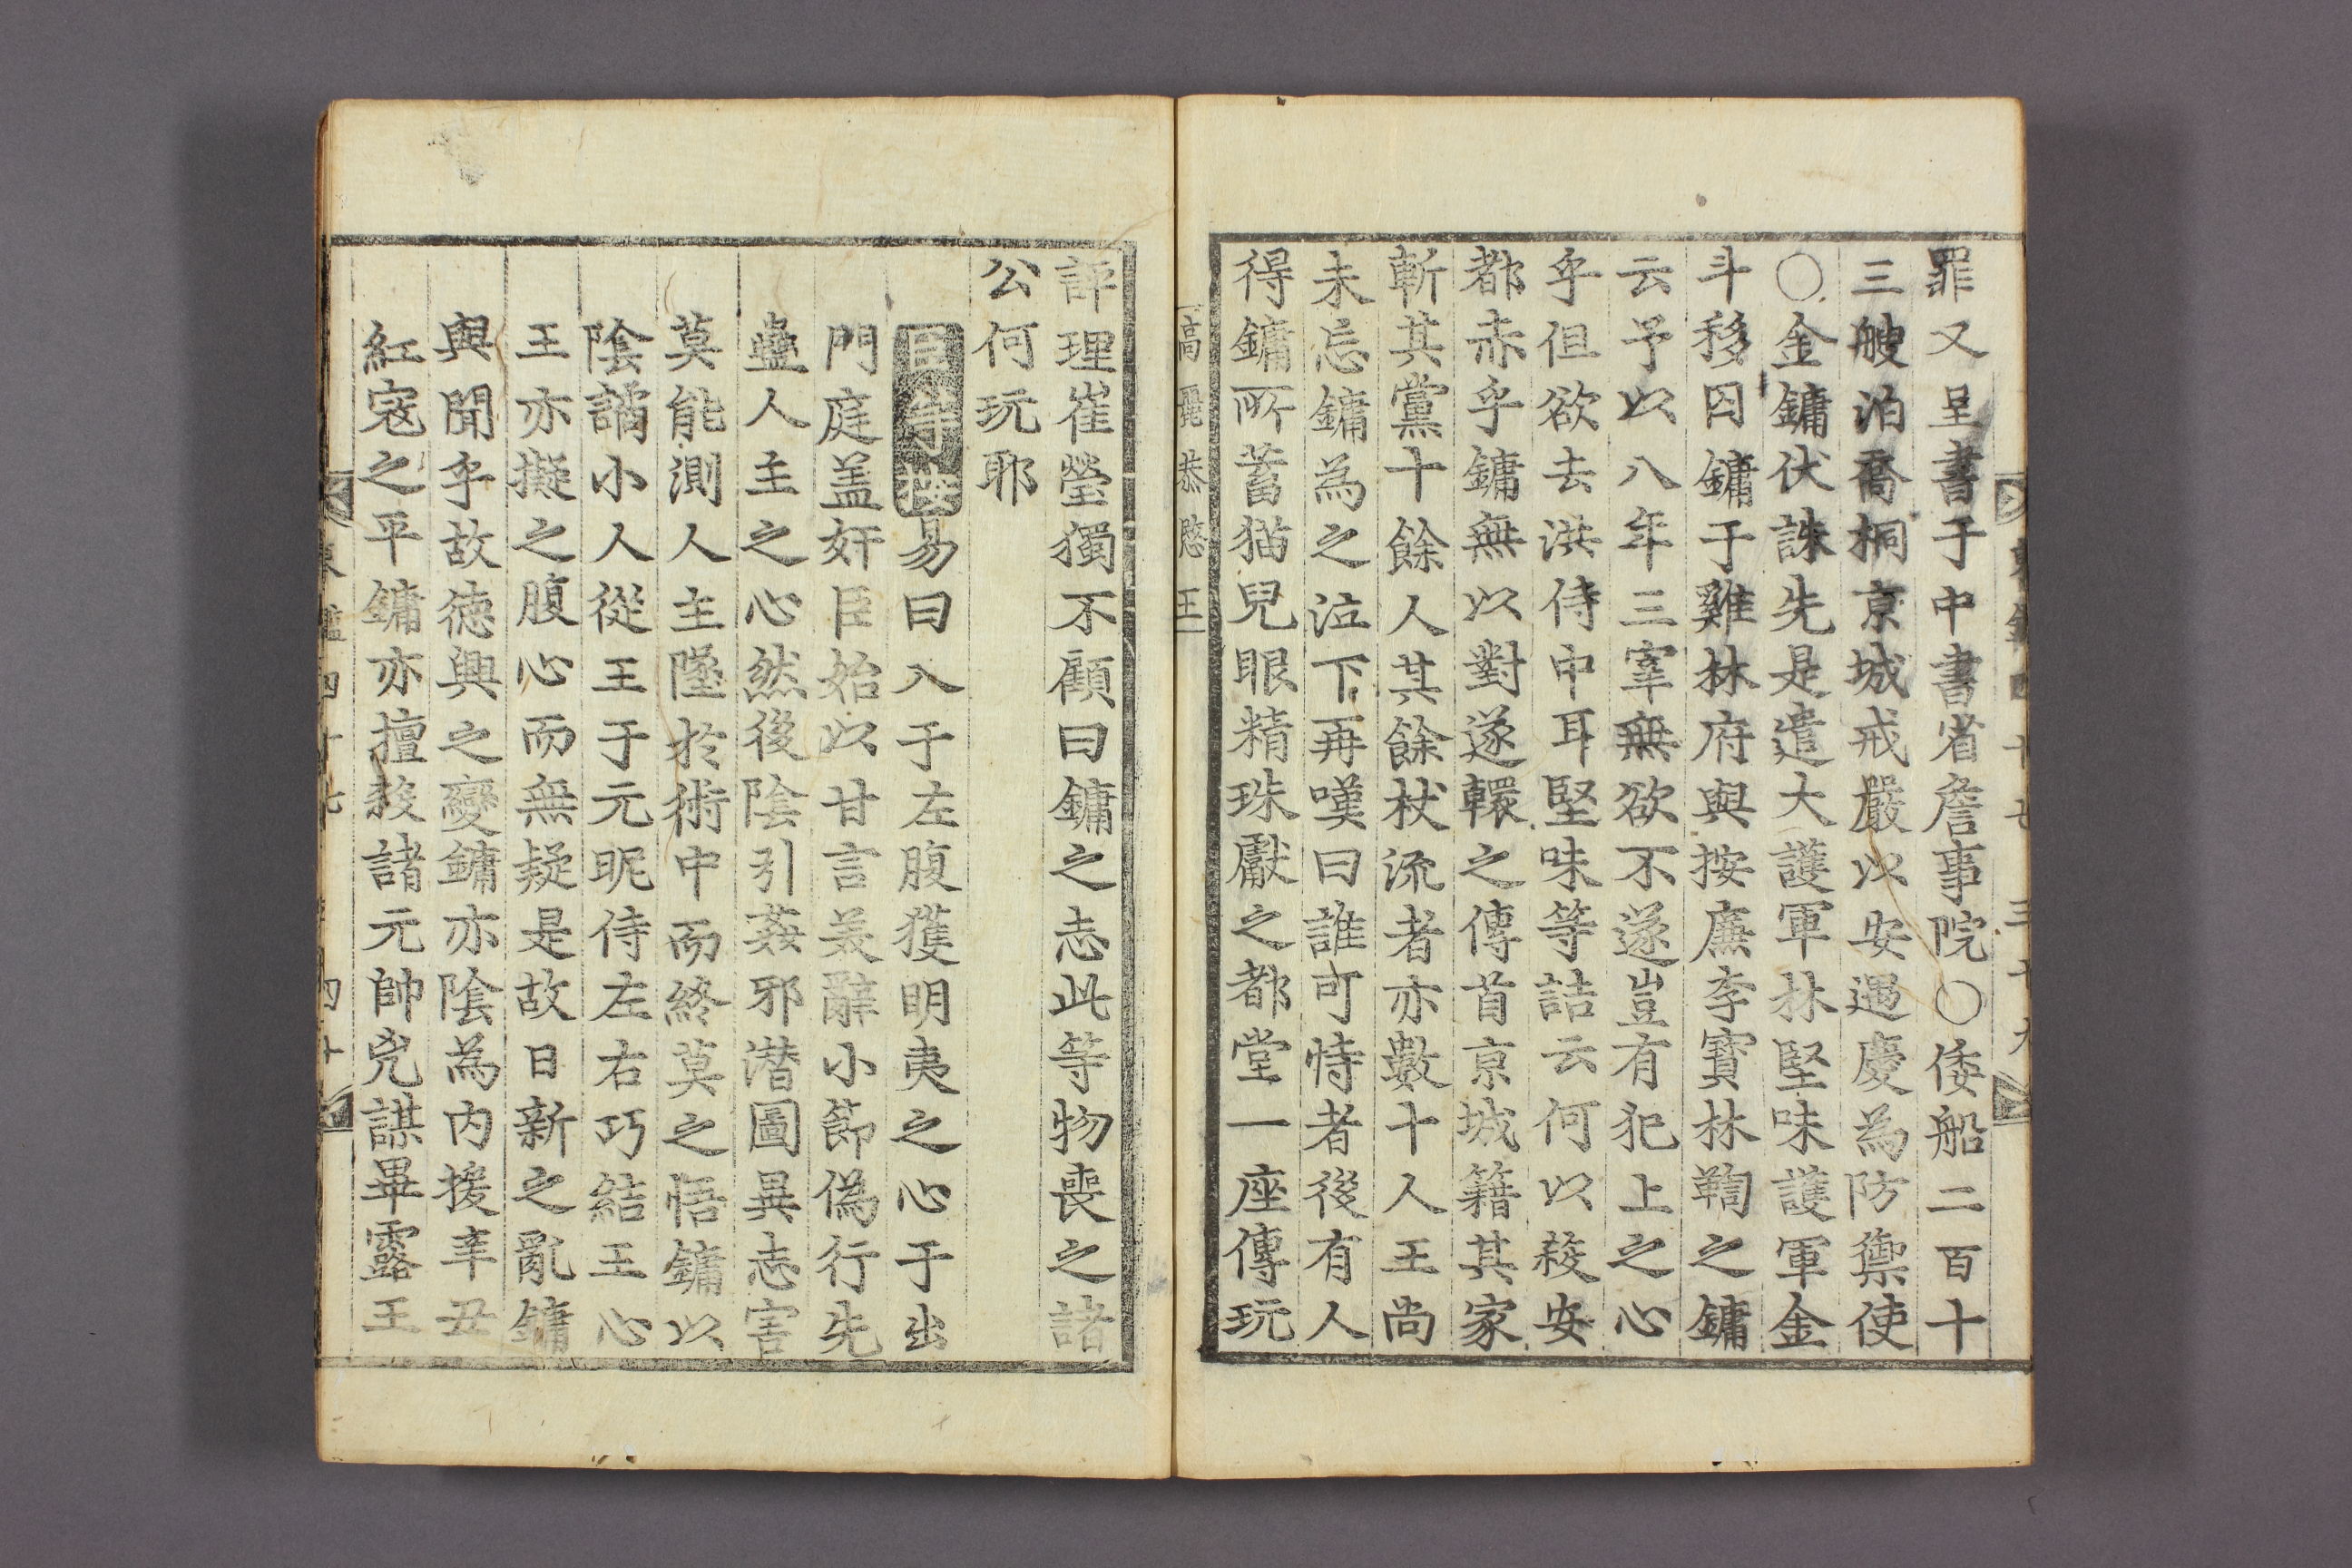 罪又呈書于中書省詹事院○倭船二百十
三艘泊喬桐京城戒嚴以安遇慶為防禦使
○金鏞伏誅先是遣大護軍林堅味護軍金
斗移囚鏞于雞林府與按廉李寶林鞫之鏞
云予以八年三宰無欲不遂豈有犯上之心
乎但欲去洪侍中耳堅味等詰云何以殺安
都赤乎鏞無以對遂轘之傳首京城籍其家
斬其黨十餘人其餘杖流者亦數十人王尚
未忘鏞為之泣下再嘆曰誰可恃者後有人
得鏞所蓄猫兒眼精珠獻之都堂一座傳玩
高麗恭愍王
評理崔瑩獨不顧曰鏞之志此等物喪之諸
公何玩耶
易曰入于左腹獲明夷之心于出
門庭盖奸臣始以甘言美辭小節偽行先
蠱人主之心然後陰引姦邪潜圖異志害
莫能測人主墮於術中而終莫之悟鏞以
陰譎小人從王于元昵侍左右巧結王心
王亦擬之腹心而無疑是故日新之亂鏞
與聞乎故德興之變鏞亦陰為内援辛丑
紅寇之平鏞亦擅殺諸元帥兇謀畢露王